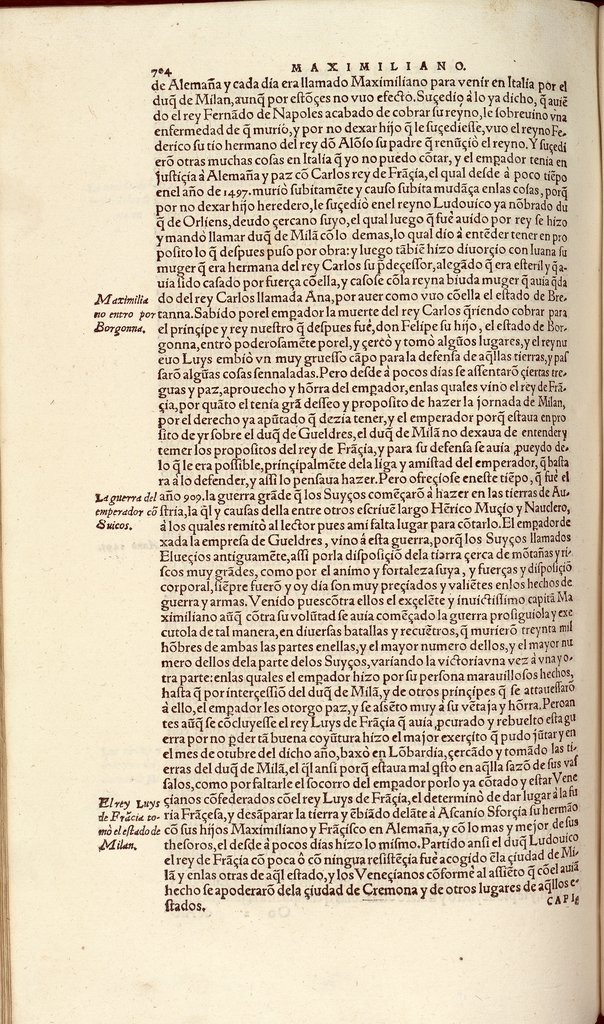 704
MAXIMILIANO.
de Alemaña y cada dia era llamado Maximiliano para venir en Italia por el
duq̃ de Milan, aunq̃ por eſtõçes no vuo efecto. Suçedio à lo ya dicho, q̃ auiẽ
do el rey Fernãdo de Napoles acabado de cobrar ſu reyno, le ſobreuino vna
enfermedad de q̃ murio, y por no dexar hijo q̃ le ſuçedieſſe, vuo el reyno Fe-
derico ſu tio hermano del rey dõ Alõſo ſu padre q̃ renũçio el reyno. Y ſuçedi
erõ otras muchas coſas en Italia q̃ yo no puedo cõtar, y el empador tenia en
juſtiçia à Alemaña y paz cõ Carlos rey de Frãçia, el qual deſde à poco tiẽpo
en el año de 1497. murio ſubitamẽte y cauſo ſubita mudãça enlas coſas, porq̃
por no dexar hijo heredero, le ſuçedio enel reyno Ludouico ya nõbrado du
q̃ de Orliens, deudo çercano ſuyo, el qual luego q̃ fue auido por rey ſe hizo
y mandò llamar duq̃ de Milã cõ lo demas, lo qual dio à entẽder tener en pro
poſito lo q̃ deſpues puſo por obra: y luego tãbiẽ hizo diuorçio con Iuana ſu
muger q̃ era hermana del rey Carlos ſu pdeçeſſor, alegãdo q̃ era eſteril y q̃ a-
uia ſido caſado por fuerça cõella, y caſoſe cõla reyna biuda muger q̃ auia ſido
Maximilia
no entro por
Borgonna.
do del rey Carlos llamada Ana, por auer como vuo cõella el eſtado de Bre-
tanna. Sabido porel empador la muerte del rey Carlos q̃riendo cobrar para
el prinçipe y rey nueſtro q̃ deſpues fue, don Felipe ſu hijo, el eſtado de Bor-
gonna, entro poderoſamẽte porel, y çercò y tomò algũos lugares, y el rey nu
euo Luys embiò vn muy grueſſo cãpo para la defenſa de aq̃llas tierras, y paſ
ſarõ algũas coſas ſennaladas. Pero deſde à pocos dias ſe aſſentarõ çiertas tre-
guas y paz, aprouecho y hõrra del empador, enlas quales vino el rey de Frã-
çia, por quãto el tenia grã deſſeo y propoſito de hazer la jornada de Milan,
por el derecho ya apũtado q̃ dezia tener, y el emperador porq̃ eſtaua en pro
ſito de yr ſobre el duq̃ de Gueldres, el duq̃ de Milã no dexaua de entender y
temer los propoſitos del rey de Frãçia, y para ſu defenſa ſe auia pueydo de-
lo q̃ le era poſſible, prinçipalmẽte dela liga y amiſtad del emperador, q̃ baſta
ra à lo defender, y aſſi lo penſaua hazer. Pero ofreçioſe eneſte tiẽpo, q̃ fue el
La guerra del
emperador cõ
Suicos.
año 909. la guerra grãde q̃ los Suyços començarõ à hazer en las tierras de Au
ſtria, la q̃l y cauſas della entre otros eſcriuẽ largo Hẽrico Muçio y Nauclero,
à los quales remito al lector pues ami falta lugar para cõtarlo. El empador de
xada la empreſa de Gueldres, vino à eſta guerra, porq̃ los Suyços llamados
Elueçios antiguamẽte, aſſi porla diſpoſiçiõ dela tierra çerca de mõtañas y ri-
ſcos muy grãdes, como por el animo y fortaleza ſuya, y fuerças y diſpoſiçiõ
corporal, ſiẽpre fuerõ y oy dia ſon muy preçiados y valiẽtes enlos hechos de
guerra y armas. Venido pues cõtra ellos el exçelẽte y inuictiſſimo capitã Ma
ximiliano aũq̃ cõtra ſu volũtad ſe auia començado la guerra proſiguiola y exe
cutola de tal manera, en diuerſas batallas y recuẽtros, q̃ murierõ treynta mil
hõbres de ambas las partes enellas, y el mayor numero dellos, y el mayor nu
mero dellos dela parte delos Suyços, variando la victoria vna vez à vna y o-
tra parte: enlas quales el empador hizo por ſu perſona marauilloſos hechos,
haſta q̃ por interçeſſiõ del duq̃ de Milã, y de otros prinçipes q̃ ſe atraueſſarõ
à ello, el empador les otorgo paz, y ſe aſſẽto muy à ſu vẽtaja y hõrra. Pero an
tes aũq̃ ſe cõcluyeſſe el rey Luys de Frãçia q̃ auia pcurado y rebuelto eſta gu
erra por no pder tã buena coyũtura hizo el major exerçito q̃ pudo jũtar y en
el mes de otubre del dicho año, baxò en Lõbardia, çercãdo y tomãdo las ti-
erras del duq̃ de Milã, el q̃l anſi porq̃ eſtaua mal q̃ſto en aq̃lla ſazõ de ſus vaſ
ſalos, como por faltarle el ſocorro del empador por lo ya cõtado y eſtar Vene
El rey Luys
de Frãcia to-
mò el eſtado de
Milan.
çianos cõfederados cõel rey Luys de Frãçia, el determinò de dar lugar à la fu
ria Frãçeſa, y deſãparar la tierra y ẽbiãdo delãte à Aſcanio Sforçia ſu hermão
cõ ſus hijos Maximiliano y Frãçiſco en Alemaña, y cõ lo mas y mejor de ſus
theſoros, el deſde à pocos dias hizo lo miſmo. Partido anſi el duq̃ Ludouico
el rey de Frãçia cõ poca ò cõ ningua reſiſtẽçia fue acogido ẽla çiudad de Mi-
lã y enlas otras de aq̃l eſtado, y los Veneçianos cõforme al aſſiẽto q̃ cõel auia
hecho ſe apoderarõ dela çiudad de Cremona y de otros lugares de aq̃llos e-
ſtados.
CAPI